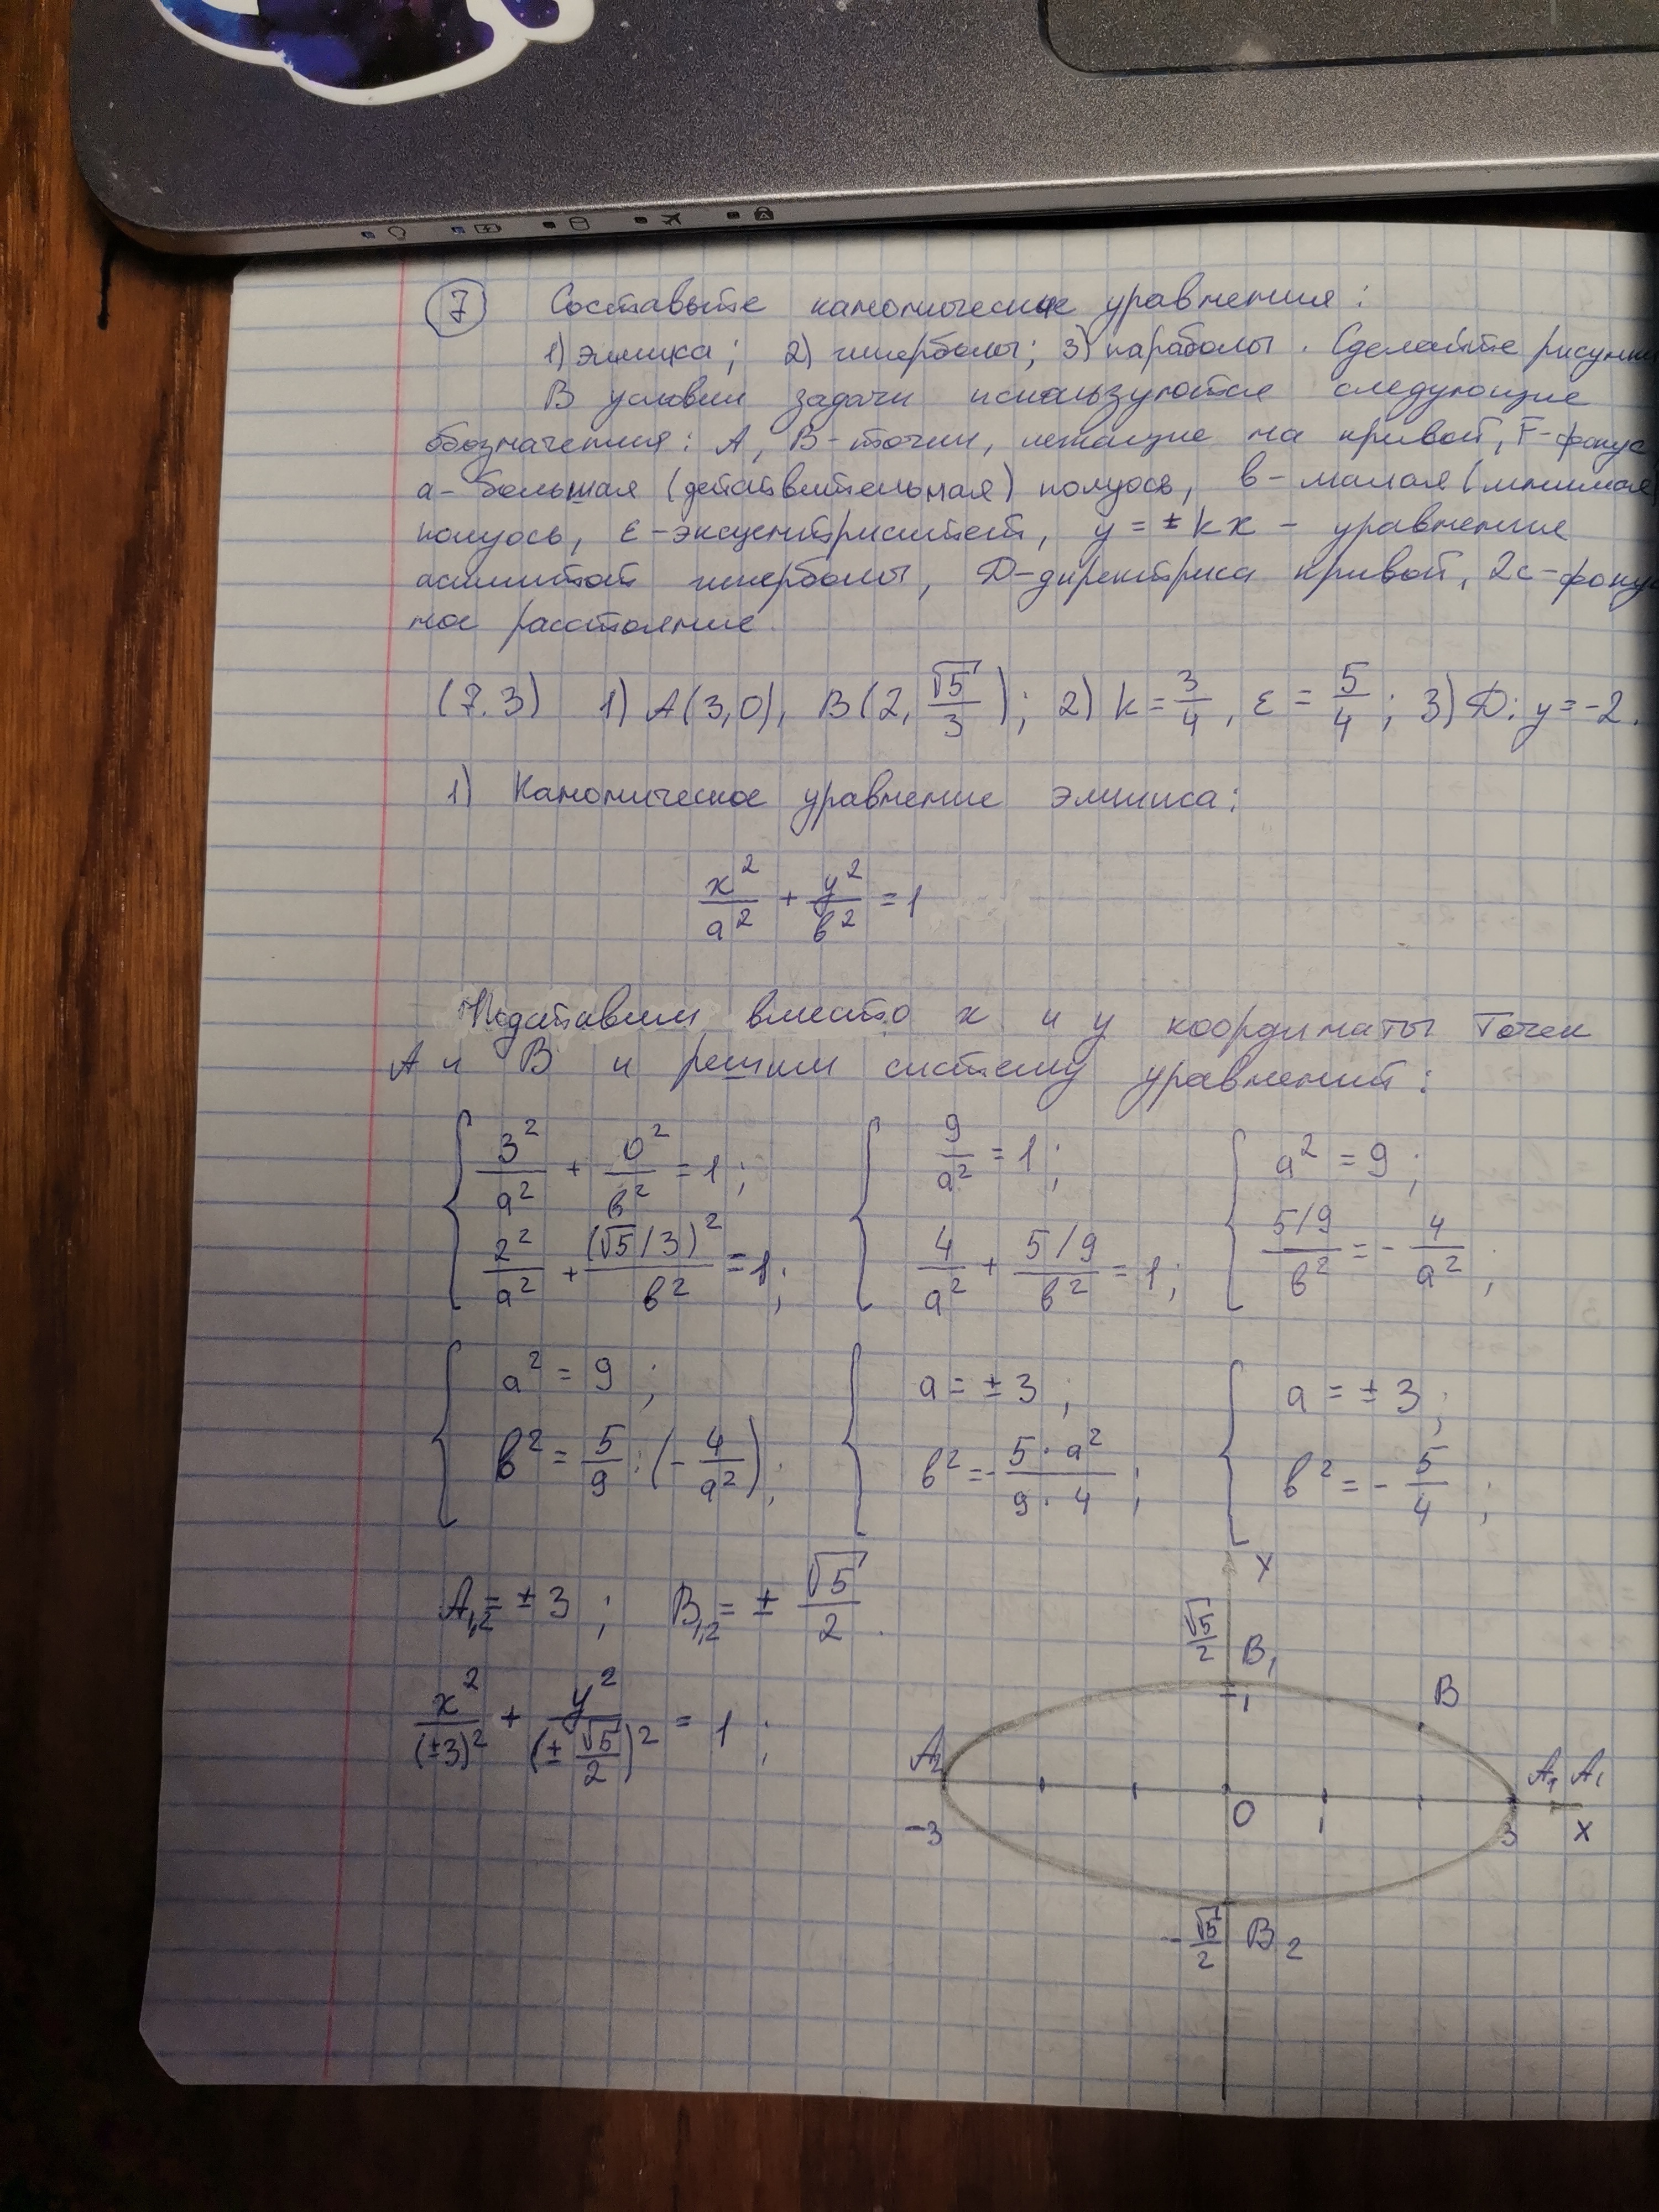 7 Составьте канонические уравнения:
1) эллипса; 2) гиперболы; 3) параболы. Сделайте рисунки
В условии задачи используются следующие
обозначения: A, B - точки, лежащие на кривой, F - фокус,
a - большая (действительная) полуось, b - малая (мнимая
полуось, ε - эксцентриситет, y = ± kx - уравнение
асимптот гиперболы, D - директриса кривой, 2c - фокус
ное расстояние.
(7.3) 1) A(3,0), B(2, √5/3); 2) k = 3/4, ε = 5/4; 3) D: y = -2.
1) Каноническое уравнение эллипса:
x²/a² + y²/b² = 1
Подставим вместо x и y координаты точек
A и B и решим систему уравнений:
{ 3²/a² + 0²/b² = 1; { 9/a² = 1; { a² = 9;
2²/a² + (√5/3)²/b² = 1; 4/a² + (5/9)/b² = 1; (5/9)/b² = - 4/a²;
{ a² = 9; { a = ± 3; { a = ± 3;
b² = 5/9 : (- 4/a²); b² = - 5·a²/9·4; b² = - 5/4;
A₁,₂ = ± 3; B₁,₂ = ± √5/2.
x²/(±3)² + y²/(± √5/2)² = 1;
Y
√5/2 B₁
1
B
A₂ A₁ A₁
-3 0 1 3 X
-√5/2 B₂